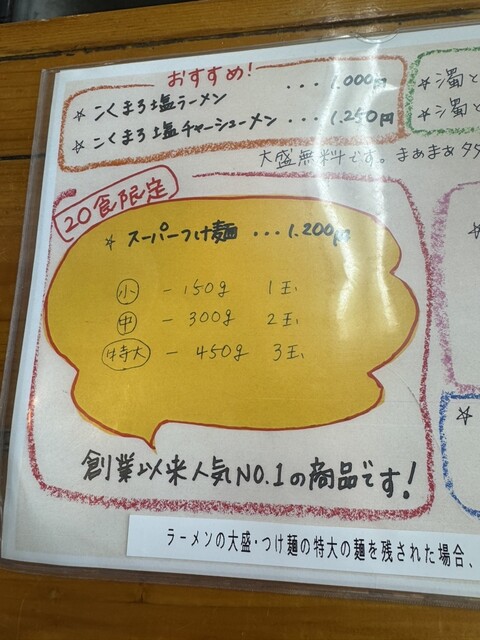 おすすめ!
☆ こくまろ塩ラーメン ・・・1.000円
☆ こくまろ塩チャーシューメン ・・・1.250円
☆ 濁と
☆ 濁と
大盛無料です。まぁまぁタ
20食限定
☆ スーパーつけ麺 ・・・1.200円
小 - 150g 1玉
中 - 300g 2玉
特大 - 450g 3玉
創業以来人気NO.1の商品です!
ラーメンの大盛・つけ麺の特大の麺を残された場合、